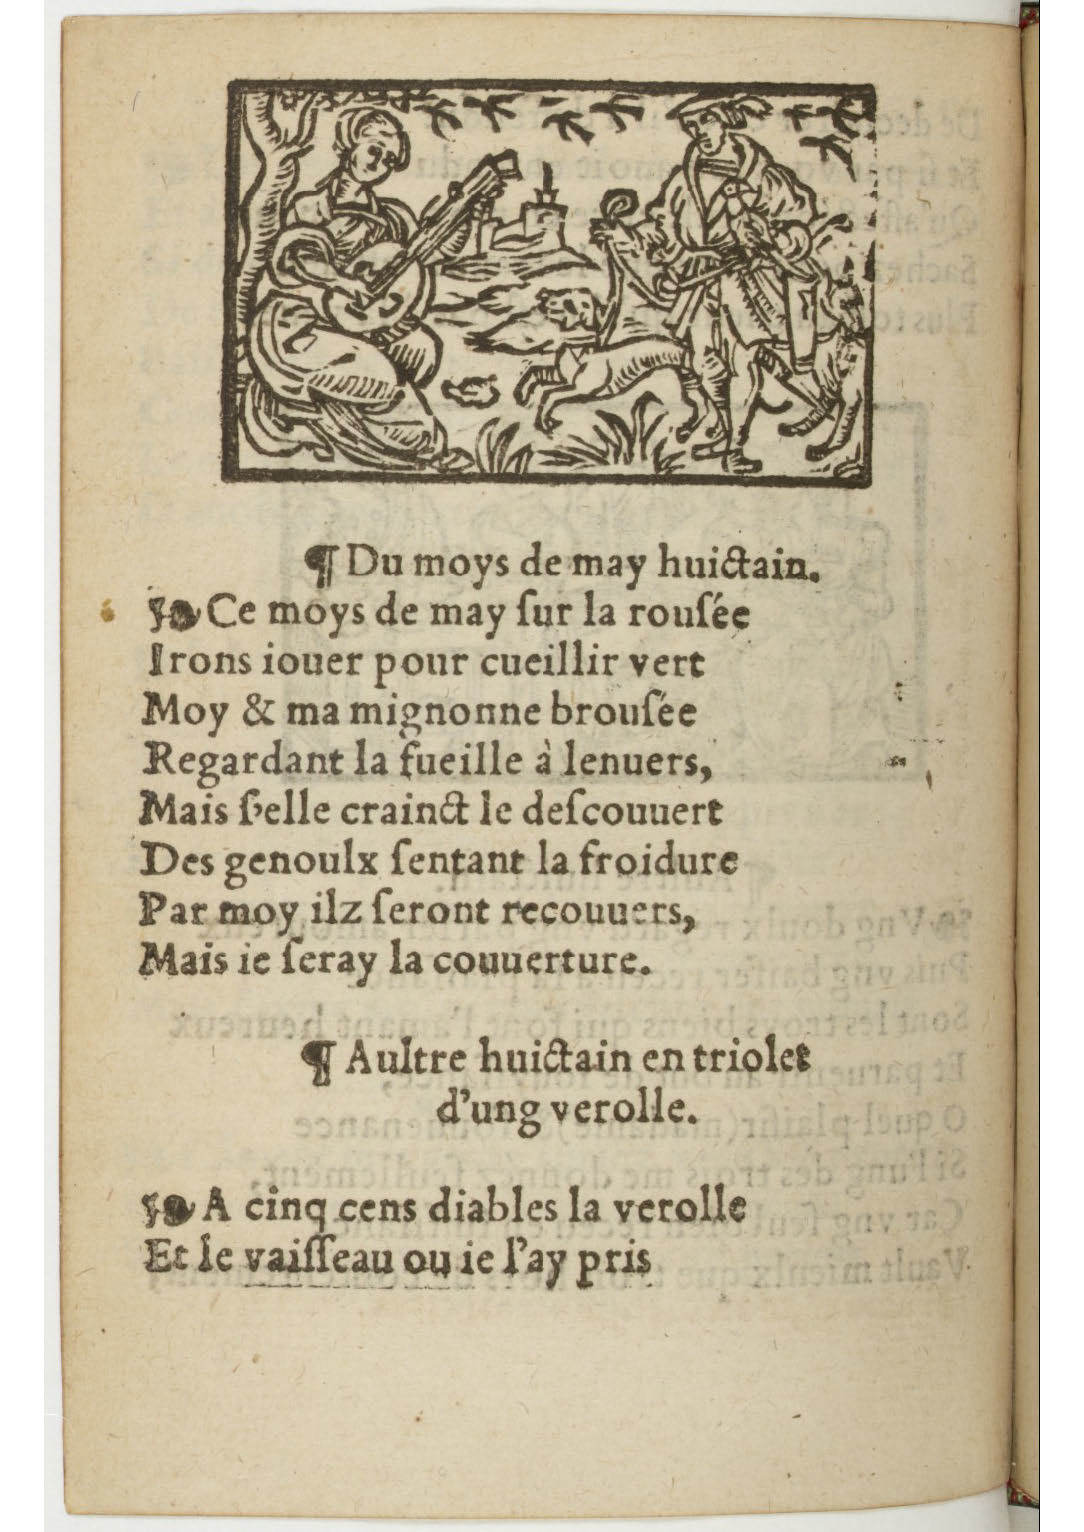 ¶ Du moys de may huictain.
❧ Ce moys de may ſur la rouſée
Irons iouer pour cueillir vert
Moy & ma mignonne brouſée
Regardant la fueille à lenuers,
Mais ſ'elle crainct le deſcouuert
Des genoulx ſentant la froidure
Par moy ilz ſeront recouuers,
Mais ie ſeray la couuerture.
¶ Aultre huictain en triolet
d'ung verolle.
❧ A cinq cens diables la verolle
Et le vaiſſeau ou ie l'ay pris